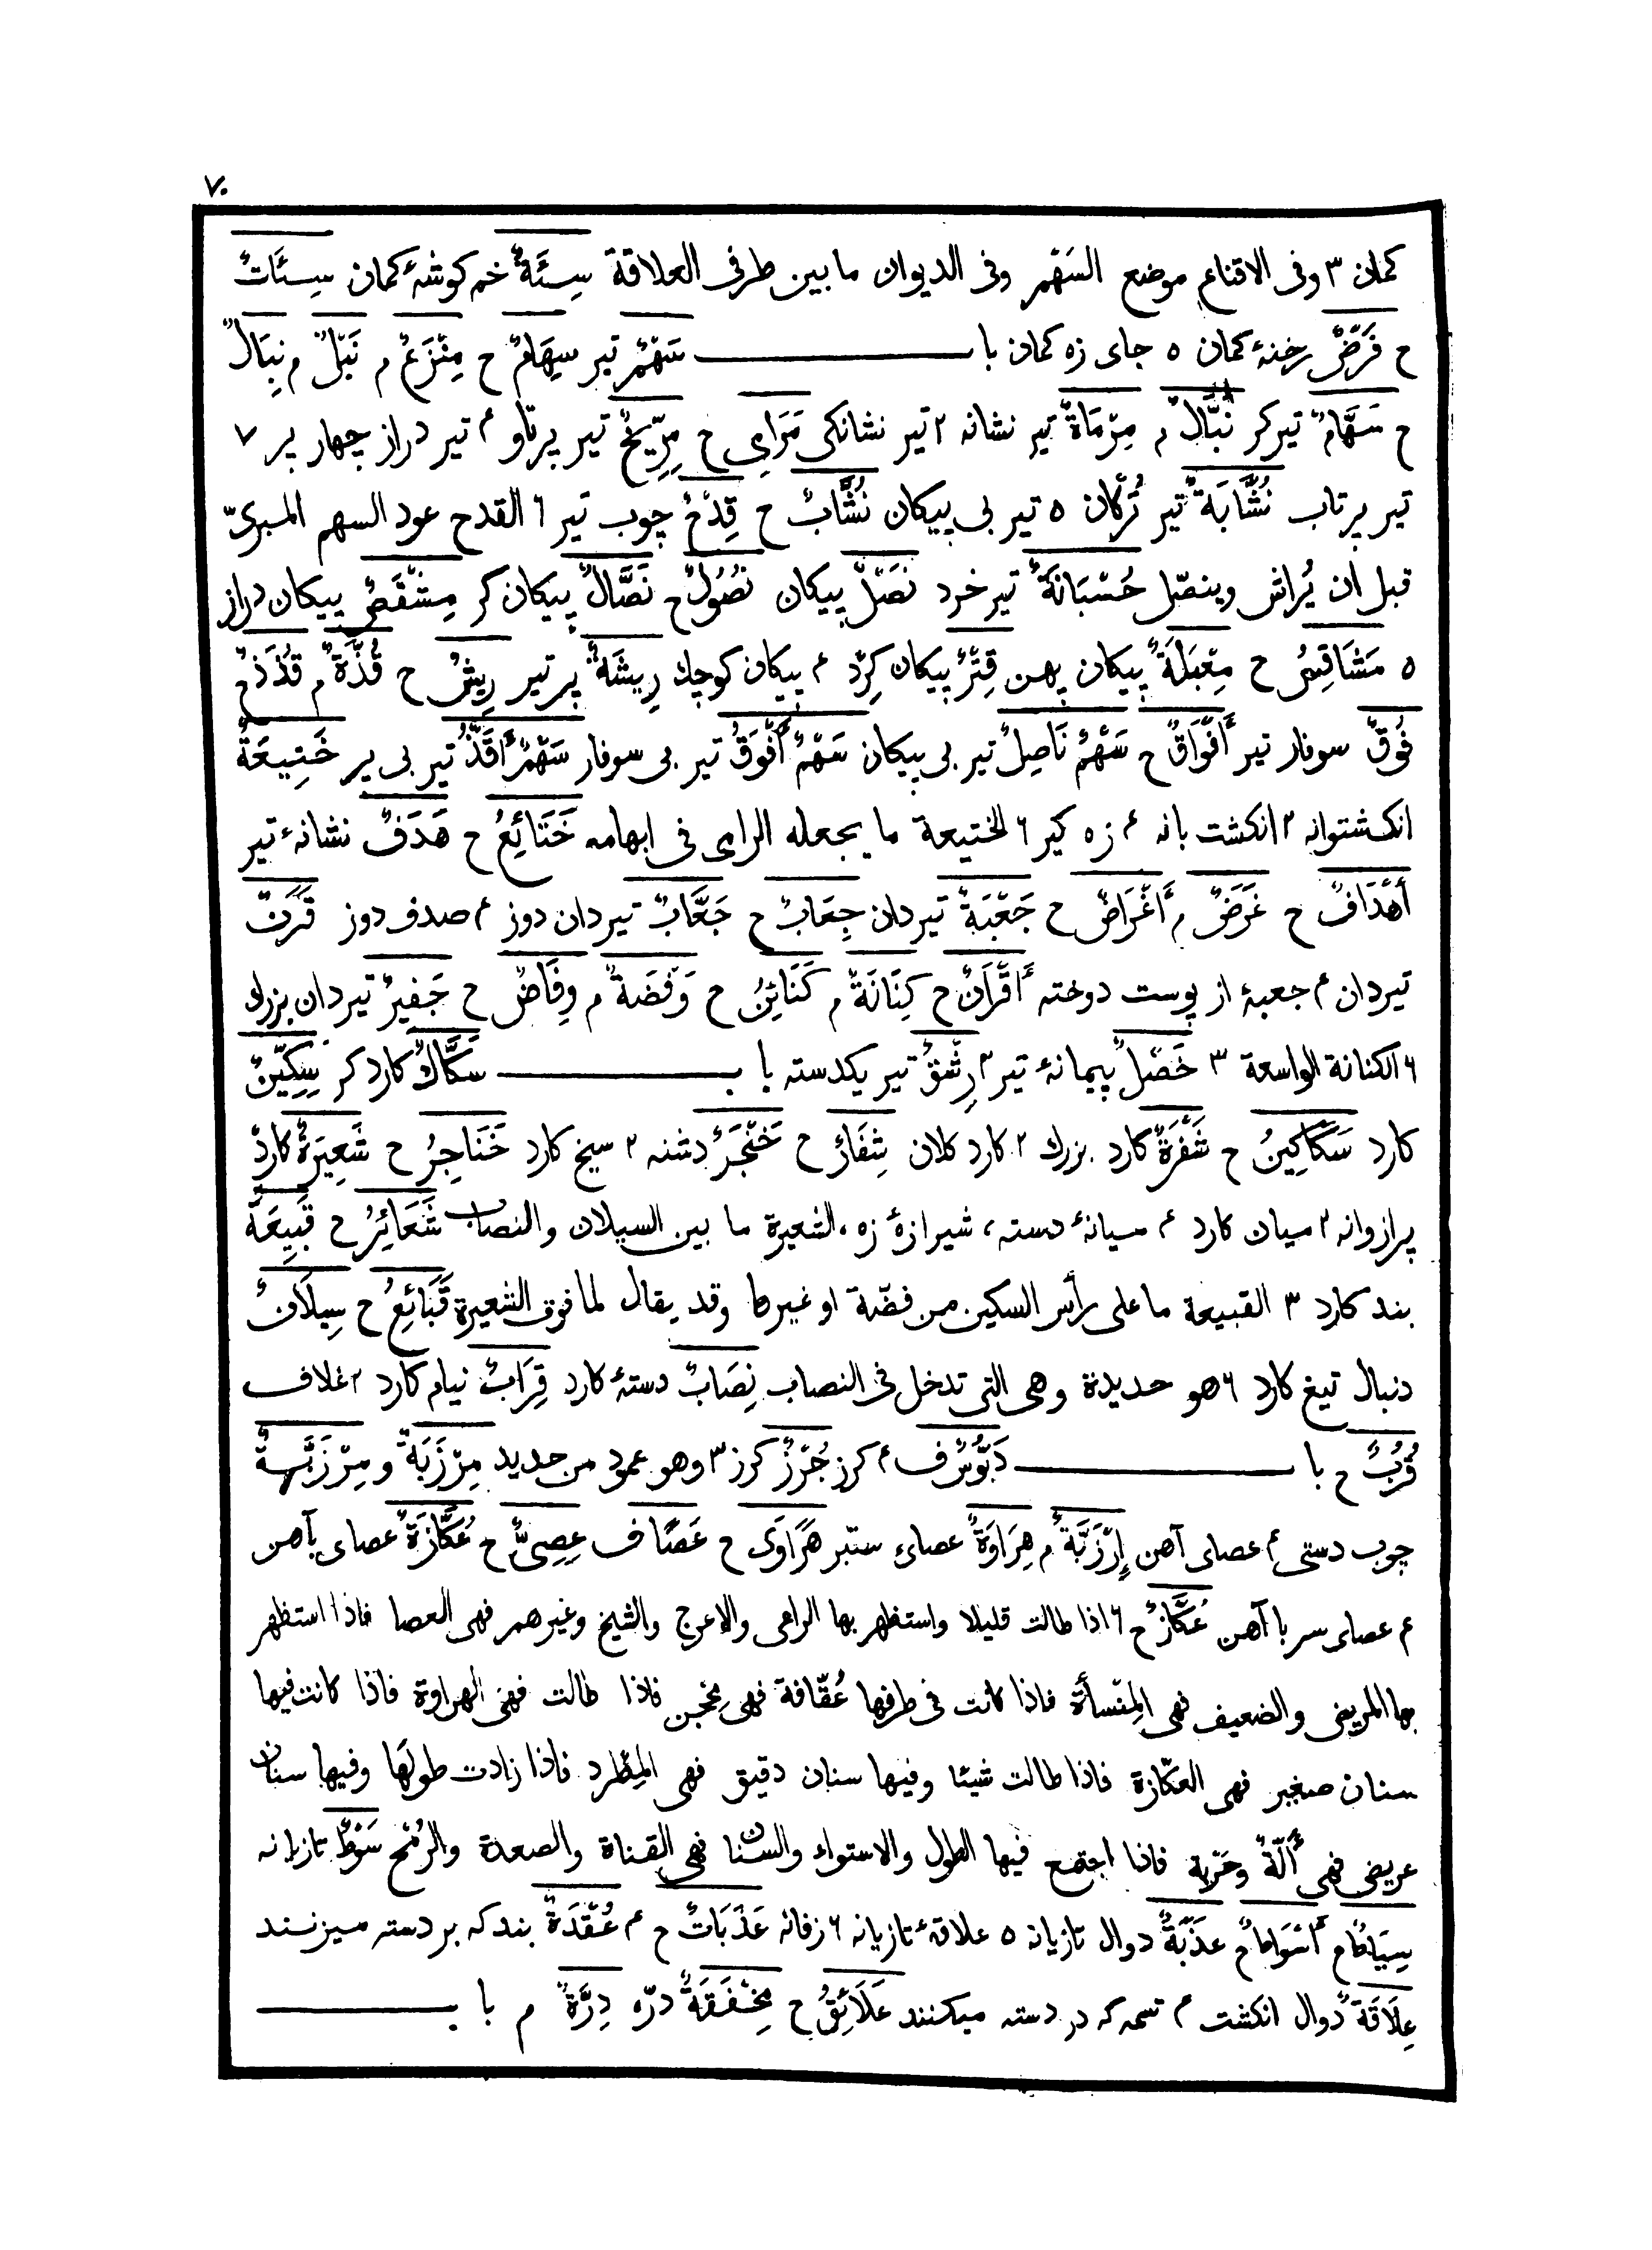 ٧٠
كمان ٣ وفى الاقناع موضع السَهْم وفى الديوان ما بين طرفى العلاقة سِئَةٌ خم كوشهٔ كمان سِئَاتٌ
ح فَرْضٌ رخنهٔ كمان ٥ جاى زه كمان با سَهْمٌ تير سِهَامٌ ح مِنْزَعٌ م نَبْلٌ م نِبَالٌ
ح سَهَّامٌ تيركر نَبَّالٌ م مِرْمَاةٌ تير نشانه ٢ تير نشانكى مَرَامِى ح مِرِّيخٌ تير پرتاو ٤ تير دراز چهار پر ٧
تير پرتاب نُشَّابَةٌ تير تُركان ٥ تير بى پيكان نُشَّابٌ ح قِدْحٌ چوب تير ٦ القدح عود السهم المبرىّ
قبل ان يُراش وينصّل حُسْبَانَةٌ تير خرد نَصْلٌ پيكان نُصُولٌ ح نَصَّالٌ پيكان كر مِشْقَصٌ پيكان دراز
٥ مَشَاقِصُ ح مِعْبَلَةٌ پيكان پهن قِتْرٌ پيكان كِرْد ٤ پيكان كوچك رِيشَةٌ پر تير رِيشٌ ح قُذَّةٌ م قُذَذٌ ح
فُوقٌ سوفار تير أَفْوَاقٌ ح سَهْمٌ نَاصِلٌ تير بى پيكان سَهْمٌ أَفْوَقُ تير بى سوفار سَهْمٌ أَقَذُّ تير بى پر خَتِيعَةٌ
انكشتوانه ٢ انكشت بانه ٤ زه كير ٦ الختيعة ما يجعله الرامى فى ابهامه خَتَائِعُ ح هَدَفٌ نشانهٔ تير
أَهْدَافٌ ح غَرَضٌ م أَغْرَاضٌ ح جَعْبَةٌ تيردان جِعَابٌ ح جَعَّابٌ تيردان دوز ٤ صدف دوز قَرَنٌ
تيردان ٤ جعبهٔ از پوست دوخته أَقْرَانٌ ح كِنَانَةٌ م كَنَائِنُ ح وَفْضَةٌ م وِفَاضٌ ح جَفِيرٌ تيردان بزرك
٦ الكنانة الواسعة ٣ خَصْلٌ پيمانهٔ تير ٣ رِشْقٌ تير يكدسته با ب سَكَّاكٌ كارد كر سِكِّينٌ
كارد سَكَاكِينُ ح شَفْرَةٌ كارد بزرك ٢ كارد كلان شِفَارٌ ح خَنْجَرٌ دشنه ٢ سيخ كارد خَنَاجِرُ ح شَعِيرَةٌ كارد
پرازوانه ٢ ميان كارد ٤ ميانهٔ دسته، شيرازهٔ زه، الشعيرة ما بين السيلان والنصاب شَعَائِرُ ح قَبِيعَةٌ
بند كارد ٣ القبيعة ما على رأس السكين من فضّة او غيرها وقد يقال لما فوق الشعيرة قَبَائِعُ ح سِيلَانٌ
دنبال تيغ كارد ٦ هو حديدة وهى التى تدخل فى النصاب نِصَابٌ دستهٔ كارد قِرَابٌ نيام كارد ٢ غلاف
قُرُبٌ ح با دَبُّوسٌ ف ٤ كرز جُرْزٌ كرز ٣ وهو عمود من حديد مِرْزَبَةٌ و مِرْزَبَّةٌ
چوب دستى ٤ عصاى آهن إِرْزَبَّةٌ م هِرَاوَةٌ عصاى ستبر هَرَاوَى ح عَصًا ف عِصِىٌّ ح عُكَّازَةٌ عصاى بآهن
٤ عصاى سر با آهن عُكَّازٌ ح ٦ اذا طالت قليلا واستظهر بها الراعى والاعرج والشيخ وغيرهم فهى العصا فاذا استظهر
بها المريض والضعيف فهى المِنْسأة فاذا كانت فى طرفها عُقّافة فهى مِحْجن فاذا طالت فهى الهراوة فاذا كانت فيها
سنان صغير فهى العكّازة فاذا طالت شيئا وفيها سنان دقيق فهى المِطْرد فاذا زادت طولها وفيها سنان
عريض فهى أَلّةٌ وحَرْبة فاذا اجتمع فيها الطول والاستواء والسنان فهى القناة والصعدة والرُمْح سَوْطٌ تازيانه
سِيَاطٌ م أَسْوَاطٌ ح عَذَبَةٌ دوال تازيانه ٥ علاقهٔ تازيانه ٦ زفانه عَذَبَاتٌ ح ٤ عُقْدَةٌ بند كه بر دسته ميزنند
عِلَاقَةٌ دوال انكشت ٤ تسمه كه در دسته ميكنند عَلَائِقُ ح مِخْفَقَةٌ درّه دِرَّةٌ م با ب